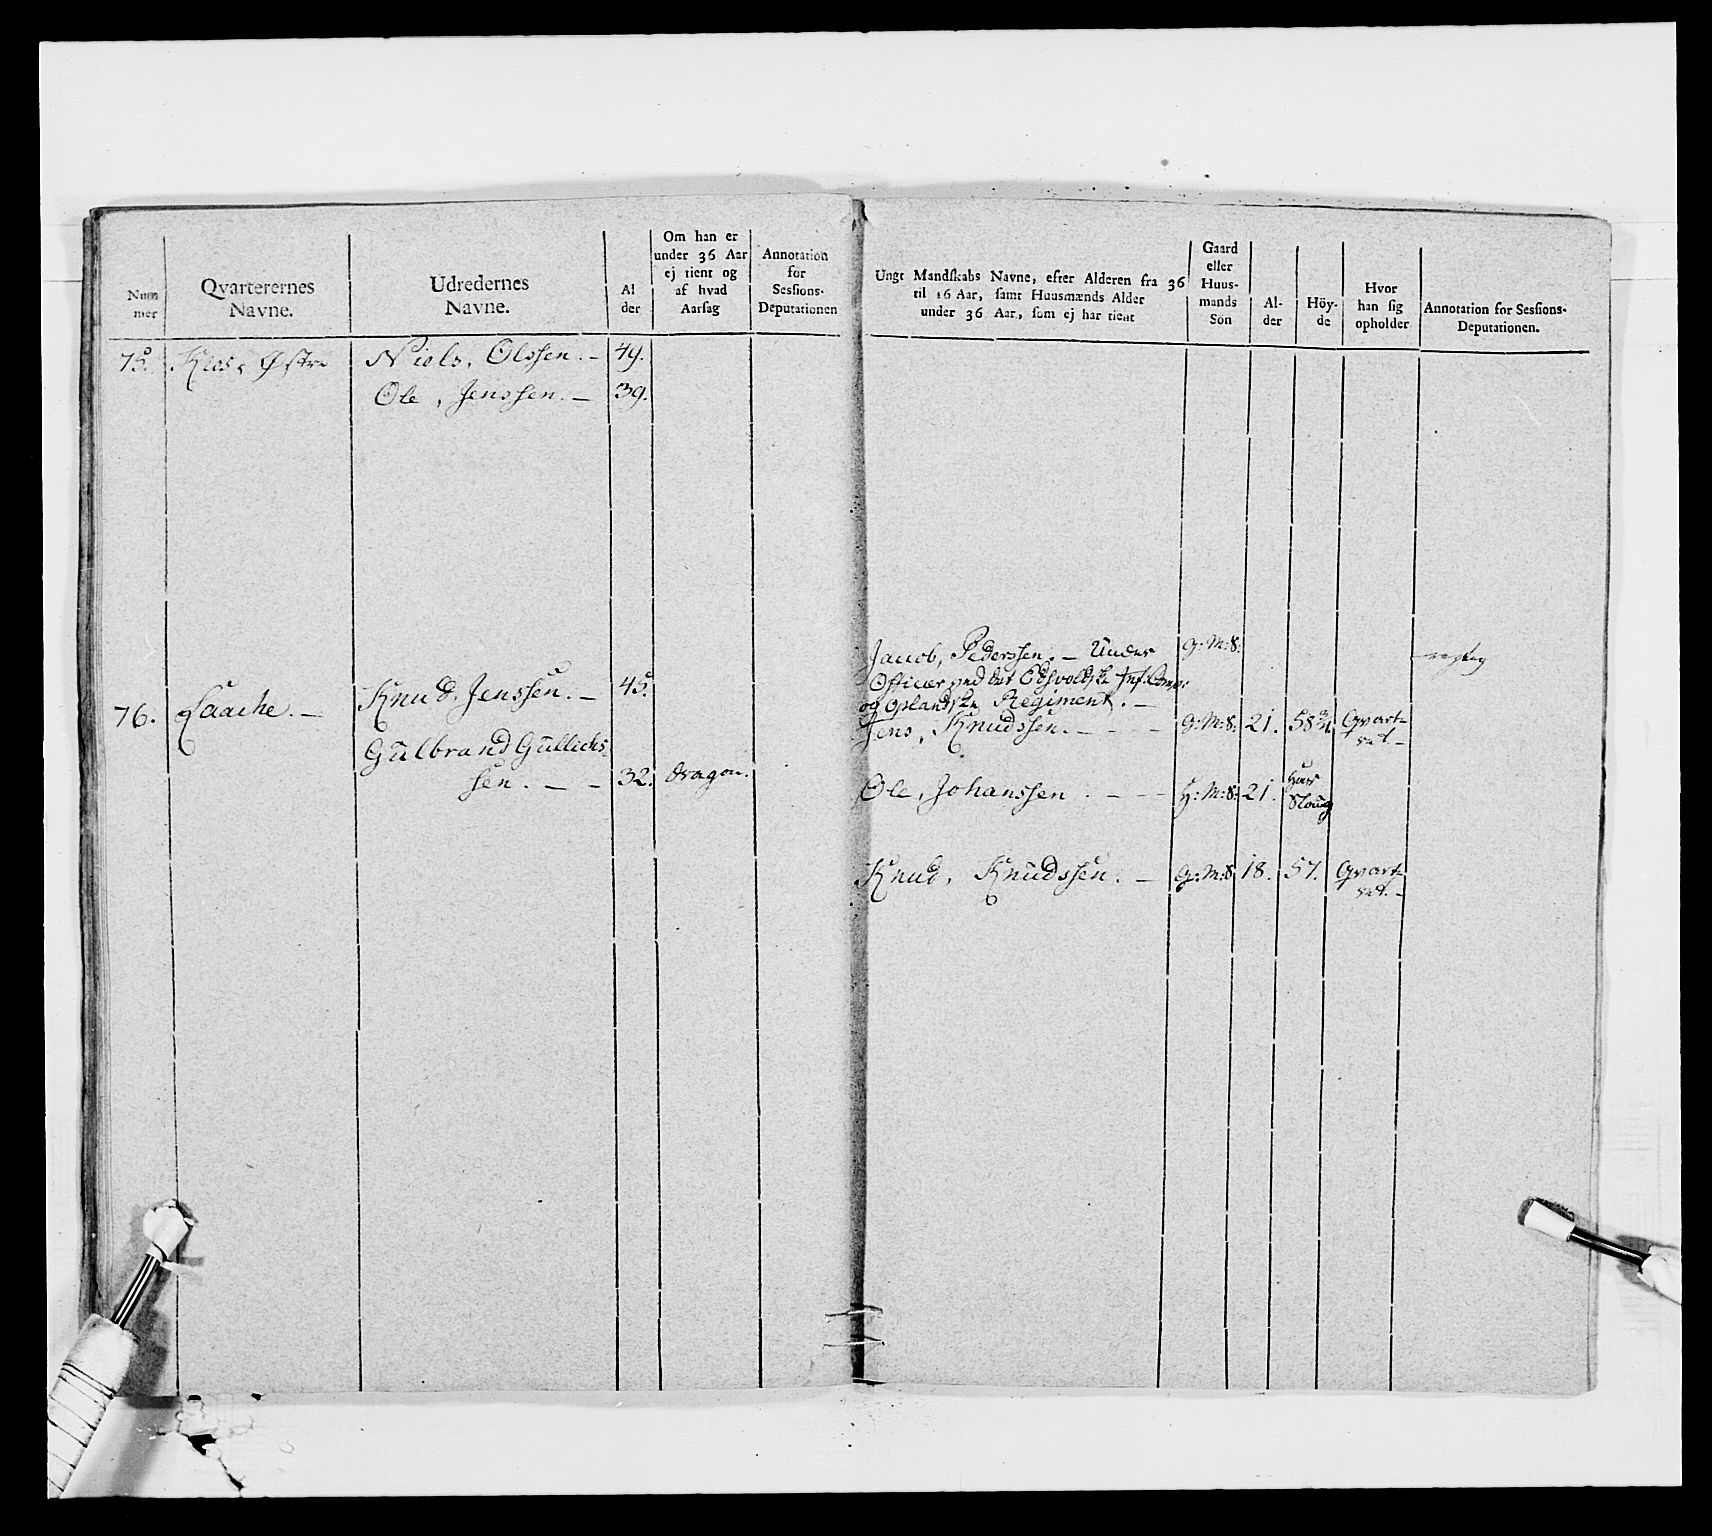 Num
mer
Qvarterernes
Navne.
Udredernes
Navne.
Al
der
Om han er
under 36 Aar
ej tient og
af hvad
Aarsag
Annotation
for
Sessions-
Deputationen
75. Øftre
Niels, Olssen. – 49.
Ole, Jenssen. – 39.
76. Laache. –
Knud, Jenssen. – 45.
Gulbrand Gullichs-
sen. – – 32. dragon.
Ungt Mandskabs Navne, efter Alderen fra 36
til 16 Aar, samt Huusmænds Alder
under 36 Aar, som ej har tient
Gaard
eller
Huus-
mands
Sön
Al-
der
Höy-
de
Hvor
han sig
opholder
Annotation for Sessions-
Deputationen.
Jacob, Pederssen. – Under G:M:S:
Officeer ved det Edsvoldske Inf: Comp:
og Oplandske Regiment. –
Jens, Knudssen. – – – G:M:S: 21. 58 3/4 Qvart-
Ole, Johanssen. – – – H:M:S: 21.
Knud, Knudssen. – G:M:S 18. 57. Qvart-